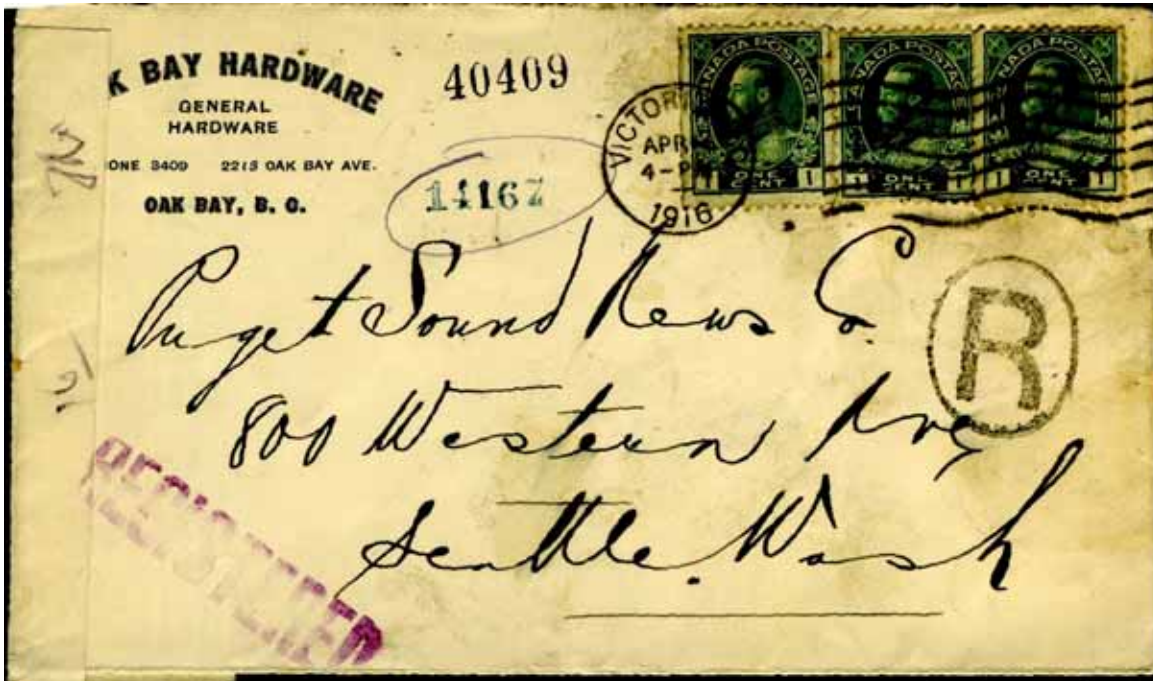 K BAY HARDWARE
GENERAL
HARDWARE
ONE 3409 2213 OAK BAY AVE.
OAK BAY, B. C.
40409
14167
VICTOR
APR
4-P
1916
NADA POSTAGE
ONE
CENT
1 1
NADA POSTAGE
ONE
CENT
1
NADA POSTAGE
ONE
CENT
1 1
Puget Sound News Co
R
800 Western Ave
Seattle. Wash
REGISTERED